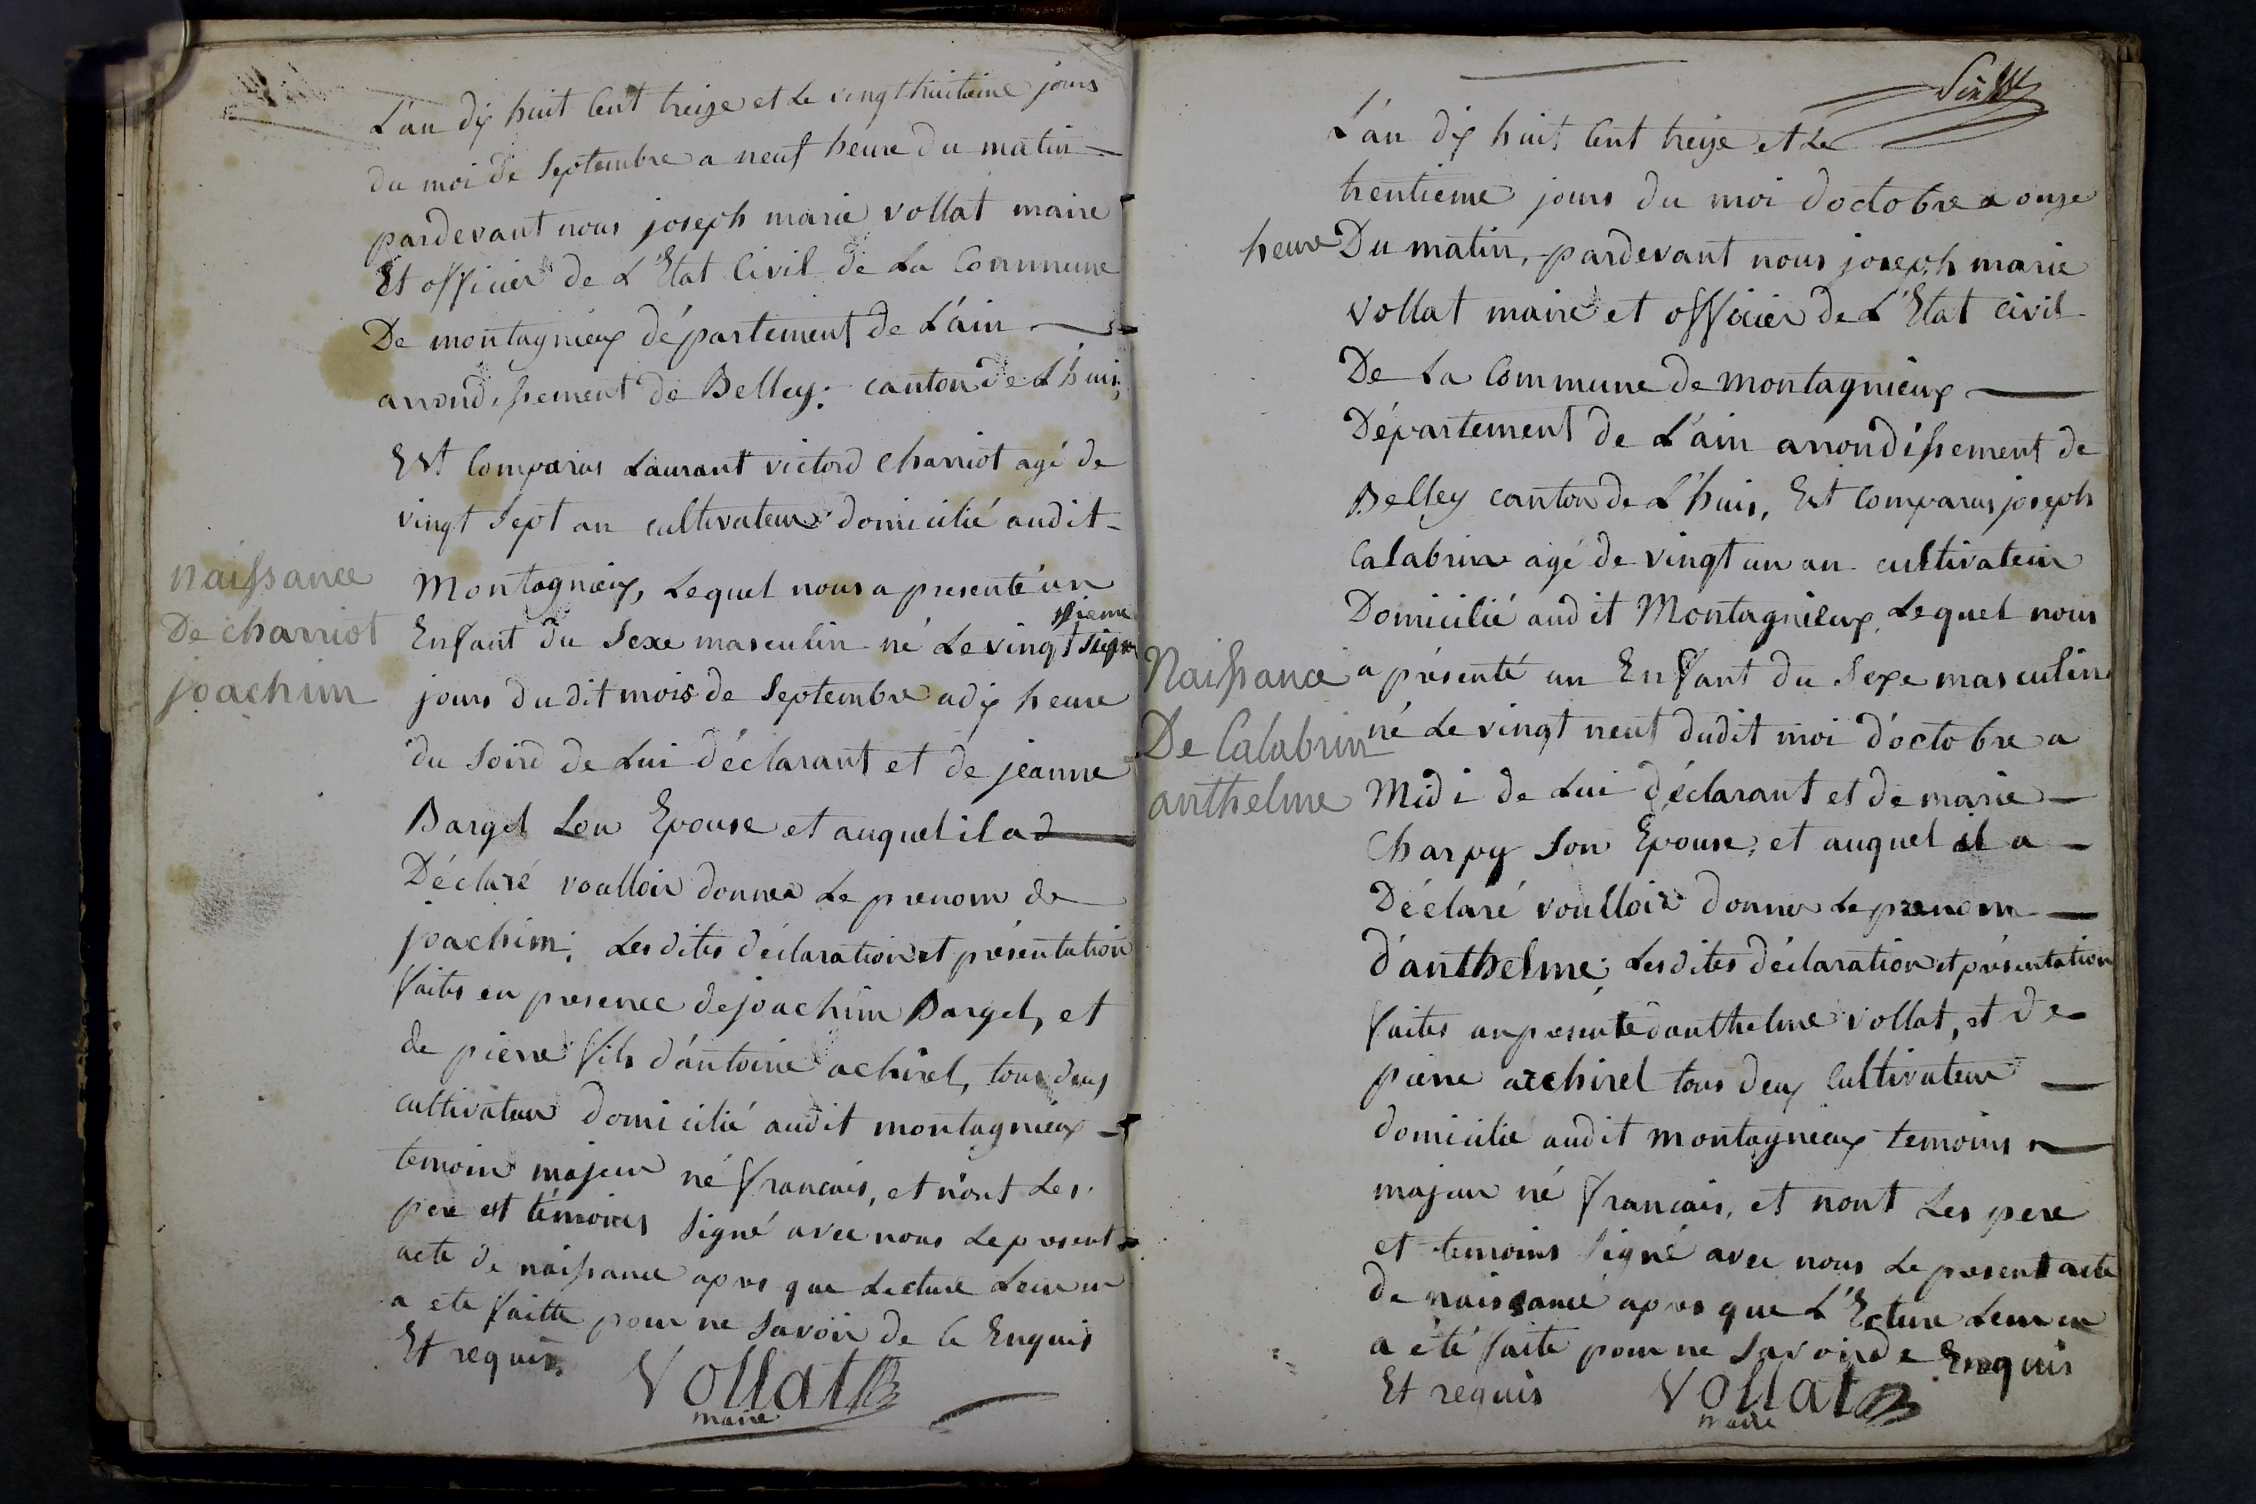 L'an dix huit Cent treize et Le vingt huitieme jours
du moi de Septembre a neuf heure du matin
pardevant nous joseph marie vollat maire
Et officier de L'Etat Civil de La Commune
De montagnieux département de L'ain
arrondissement de Belley. canton de L'huis,
Est Comparus Laurant victord charriot agé de
vingt Sept an cultivateur domicilié audit
naissance
De charriot
joachim
Montagnieux, Lequel nous a presenté un
Enfant du Sexe masculin né Le vingt Septieme
jours dudit mois de Septembre a dix heure
du soird de Lui déclarant et de jeanne
Barget Son Epouse et auquel il a d
Déclaré voulloir donner Le prenom de
joachim; Les dites déclaration et présentation
faites en presence de joachim Barget, et
de pierre fils d'antoine achirel, tous deux
cultivateur domicilié audit montagnieux
temoin majeur né francais, et n'ont Les
pere et témoins signé avec nous Le present
acte de naissance apres que Lecture Leur en
a ete faitte pour ne Savoir de Ce Enquis
Et requis. Vollat
maire
L'an dix huit Cent treize et Le
trentieme jours du moi d'octobre a onze
heure Du matin, pardevant nous joseph marie
vollat maire et officier de L'Etat civil
De La Commune de montagnieux
Département de L'ain arrondissement de
Belley canton de L'huis, Est Comparus joseph
Calabrin agé de vingt un an cultivateur
Domicilié audit Montagnieux, Lequel nous
Naissance
De Calabrin
anthelme
a présenté un Enfant du Sexe masculin
né Le vingt neuf dudit moi d'octobre a
Midi de Lui déclarant et de marie
Charpy Son Epouse, et auquel il a
Déclaré voulloir donner Le prenom
d'anthelme; Les dites déclaration et présentation
faites en presence d'anthelme vollat, et de
pierre achirel tous deux Cultivateur
domicilié audit montagnieux temoins
majeur né francais, et nont Les pere
et temoins signé avec nous Le present acte
de naissance apres que L'Ecture Leur en
a été faite pour ne Savoir de Enquis
Et requis Vollat
maire